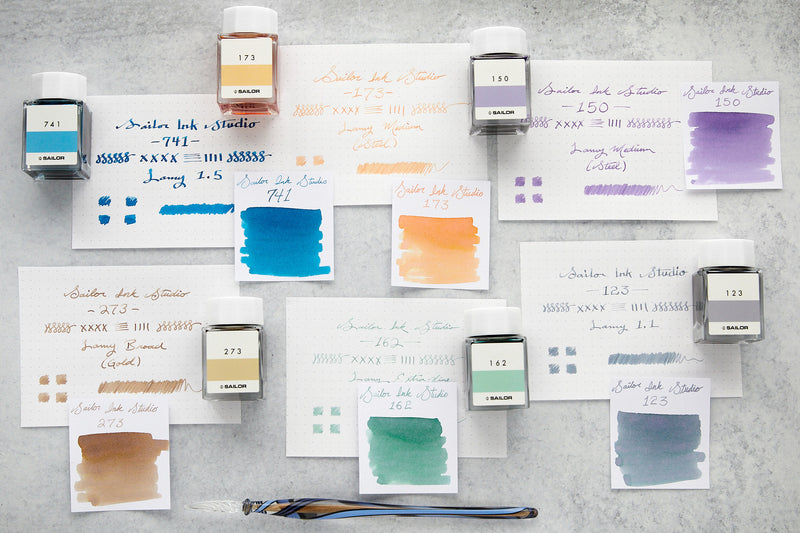 741
SAILOR
Sailor Ink Studio
-741-
xxxx
Lamy 1.5
Sailor Ink Studio
741
173
SAILOR
Sailor Ink Studio
-173-
xxxx
Lamy Medium
(Steel)
Sailor Ink Studio
173
150
SAILOR
Sailor Ink Studio
-150-
xxxx
Lamy Medium
(Steel)
Sailor Ink Studio
150
Sailor Ink Studio
-273-
xxxx
Lamy Broad
(Gold)
273
SAILOR
Sailor Ink Studio
273
Sailor Ink Studio
-162-
xxxx
Lamy Extra Fine
162
SAILOR
Sailor Ink Studio
162
Sailor Ink Studio
-123-
xxxx
Lamy 1.1
123
SAILOR
Sailor Ink Studio
123